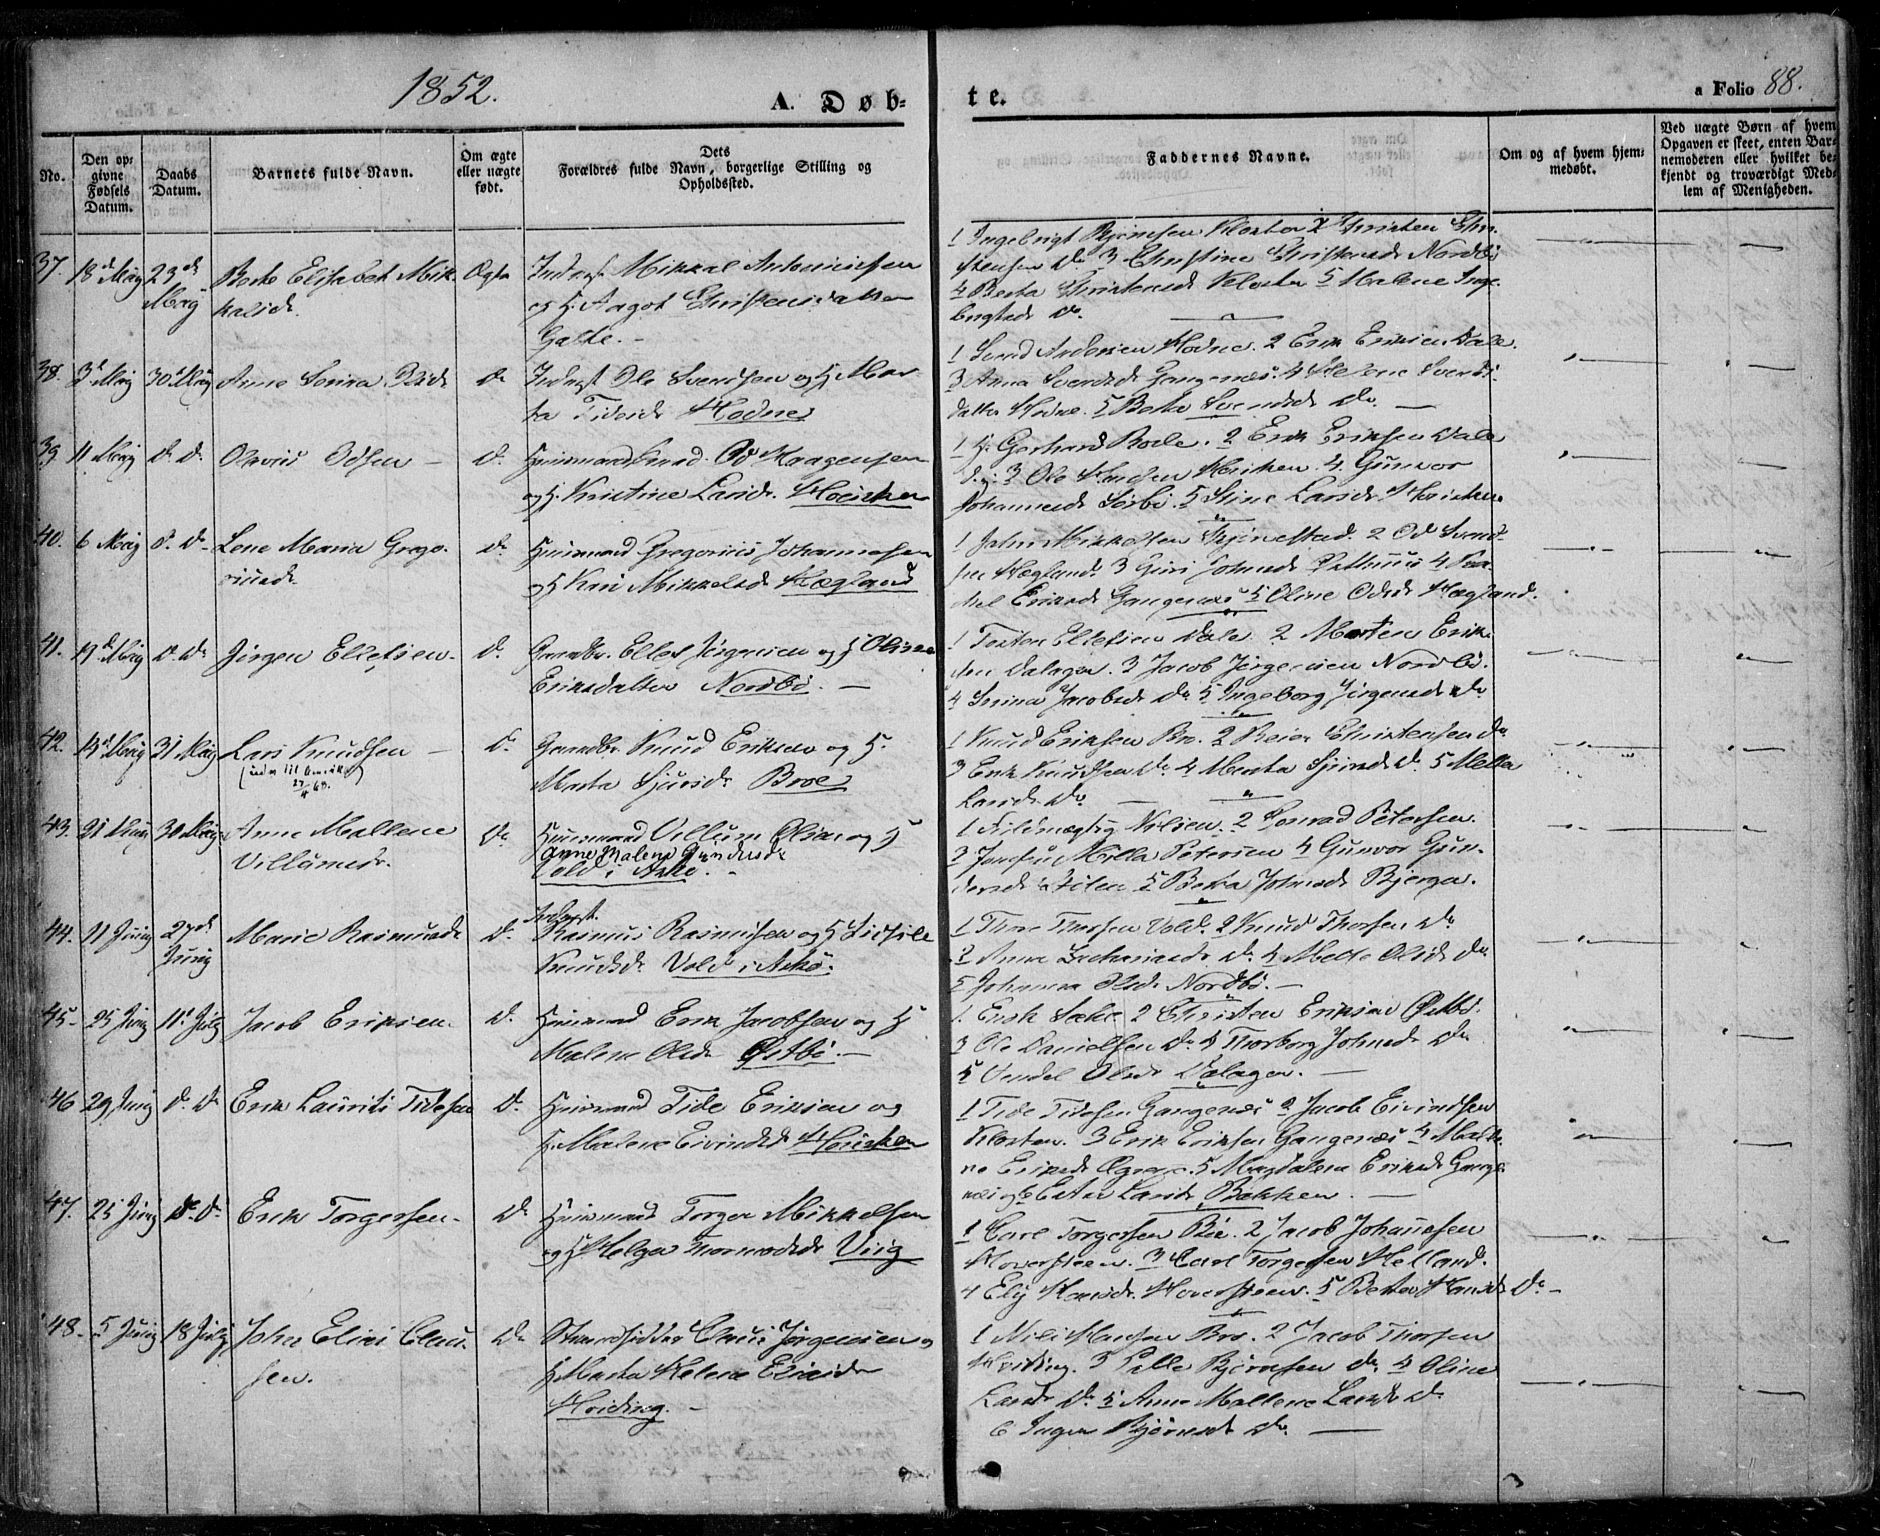 1852.
A. Døb-
te.
a Folio 88.
No.
Den op-
givne
Fødsels
Datum.
Daabs
Datum.
Barnets fulde Navn.
Om ægte
eller uægte
født.
Dets
Forældres fulde Navn, borgerlige Stilling og
Opholdssted.
Faddernes Navne.
Om og af hvem hjem-
medøbt.
Ved uægte Børn af hvem
Opgaven er skeet, enten Bar-
nemoderen eller hvilket be-
kjendt og troværdigt Med-
lem af Menigheden.
37.
18d Maij
23de
Maij
Berte Elisabet Mik-
kalsd.
Ægte
Inderst Mikkal Antoniusen
og H. Aagot Christensdatter
Galte.
1 Ingebrigt Bjørnsen Kloster 2 Christen Chri-
stensen Do 3 Christine Christensd Nordbø
4 Berta Christensd Kloster 5 Malene Inge-
brigtsd. Do.
38.
3d Maij
30d Maij
Anne Serina Olsd.
do
Inderst Ole Svendsen og H. Mar-
ta Tidesd. Hodne
1 Svend Andersen Hodne. 2 Erik Eriksen Dale.
3 Anna Svendsd. Gangenæs. 4 Helene Svends-
datter Hodne. 5 Berta Svendsd Do.
39
11 Maij
d. do.
Olavus Odsen
d.
Huusmand Od Haagensen
og H. Kristine Larsd. Hoisken
1 H. Gerhard Bode. 2 Erik Eriksen Dale
3 Ole Hansen Hoisken. 4 Gunvor
Johannesd Sørbø. 5 Stine Larsd Hoisken
40.
6 Maij
d. do
Lene Maria Grego-
riusd.
do
Huusmand Gregorius Johannesen
og H Kari Mikkelsd Hægland
1 John Mikkelsen Tjinestad. 2 Od Svend-
sen Hægland. 3 Guri Johnsd 4 Ra-
kel Eriksd Gangenæs 5 Oline Odsd Hægland.
41.
19d Maij
d. do
Jørgen Ellefsen
d.
Gaardbr. Ellef Jørgensen og H Oline
Eriksdatter Nordbø.
1 Torsten Ellefsen Dale. 2 Morten Erik-
sen Dalager. 3 Jacob Jørgensen Nordbø.
4 Serina Jacobsd Do 5 Ingeborg Jørgensd Do
42.
19d Maij
31 Maij
Lars Knudsen
d.
Gaardbr. Knud Eriksen og H.
Marta Sjursd. Broe
1 Knud Eriksen Bro. 2 Reier Christensen do
3 Erik Knudsen Do. 4 Marta Sjursd Do. 5 Mette
Larsd. Do
43.
30 Maij
Anne Mallene
Villumsd.
do
Huusmand Villum Olsen og H
Anne Malene Gundersd.
Vold i Askø.
1 Fuldmægtig Nilsen. 2 Conrad Petersen.
3 Jomfru Milla Petersen 4 Gunvor Gun-
dersd. 5 Berta Johnsd Bjerga.
44.
11 Junij
27d
Junij
Marie Rasmusd
d.
Inderst.
Rasmus Rasmusen og H Sidsele
Knudsd. Vold i Askø.
1 Thore Thorsen Vold. 2 Knud Thorsen Do
3 Anna Zachariasd. Do 4 Mette Olsd Do
5 Johanna Olsd. Nordbø.
45.
25 Junij
11d July
Jacob Eriksen.
d.
Huusmand Erik Jacobsen og H
Malene Olsd. Østbø.
1. Erik 2 Christen Eriksen Østbø.
3 Ole Danielsen Do 4 Thorborg Johnsd Do
5 Vendel Olsd Dalager.
46
29 Junij
d. Do
Erik Laurits Tidesen
d.
Huusmand Tide Eriksen og
H. Malene Eivindsd. Hoisken
1 Tide Tidesen Gangenæs 2 Jacob Eivindsen
Kloster. 3 Erik Eriksen Gangenæs 4 Mart-
he Eriksd. 5 Magdalena Eriksd. Gange-
næs og 6 Ester Larsd. Bakken.
47.
25 Junij
d. do
Erik Torgersen.
Do
Huusmand Torger Mikkelsen
og H Helga Tormodsd Viig
1 Carl Torgersen Bøe. 2 Jacob Johannesen
Hoversteen. 3 Carl Torgersen Helland.
4 Elj Hansd. Hoversteen. 5 Berta Hansd. Do
48.
5 Junij
18 July
John Elias Clau-
sen.
Do
Strandsidder Claus Jørgensen og
H. Marta Helene Eliasd.
Hviding.
1 Nils Hansen Bro. 2 Jacob Thorsen
Hviding. 3 Palle Bjørnsen Do 4 Oline
Larsd. Do 5 Anne Mallene Larsd. Do
6 Inger Bjørnsd Do.